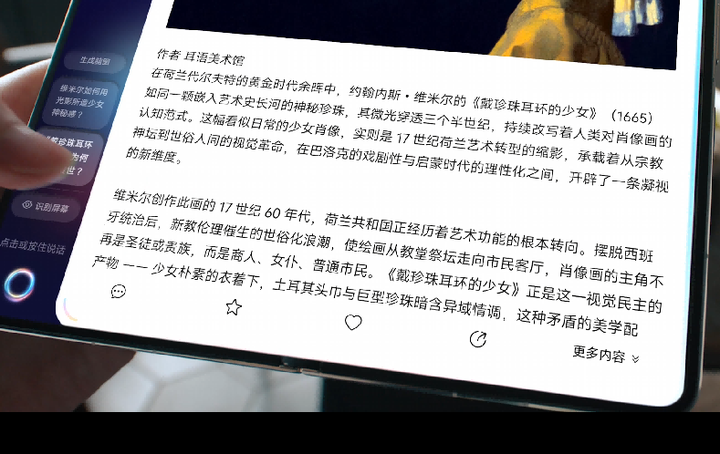 生成脑图
维米尔如何用
光影所造少女
神秘感？
戴珍珠耳环
为何
世？
识别屏幕
点击或按住说话
作者 耳语美术馆
在荷兰代尔夫特的黄金时代余晖中，约翰内斯·维米尔的《戴珍珠耳环的少女》（1665）
如同一颗嵌入艺术史长河的神秘珍珠，其微光穿透三个半世纪，持续改写着人类对肖像画的
认知范式。这幅看似日常的少女肖像，实则是 17 世纪荷兰艺术转型的缩影，承载着从宗教
神坛到世俗人间的视觉革命，在巴洛克的戏剧性与启蒙时代的理性化之间，开辟了一条凝视
的新维度。
维米尔创作此画的 17 世纪 60 年代，荷兰共和国正经历着艺术功能的根本转向。摆脱西班
牙统治后，新教伦理催生的世俗化浪潮，使绘画从教堂祭坛走向市民客厅，肖像画的主角不
再是圣徒或贵族，而是商人、女仆、普通市民。《戴珍珠耳环的少女》正是这一视觉民主的
产物 —— 少女朴素的衣着下，土耳其头巾与巨型珍珠暗含异域情调，这种矛盾的美学配
更多内容